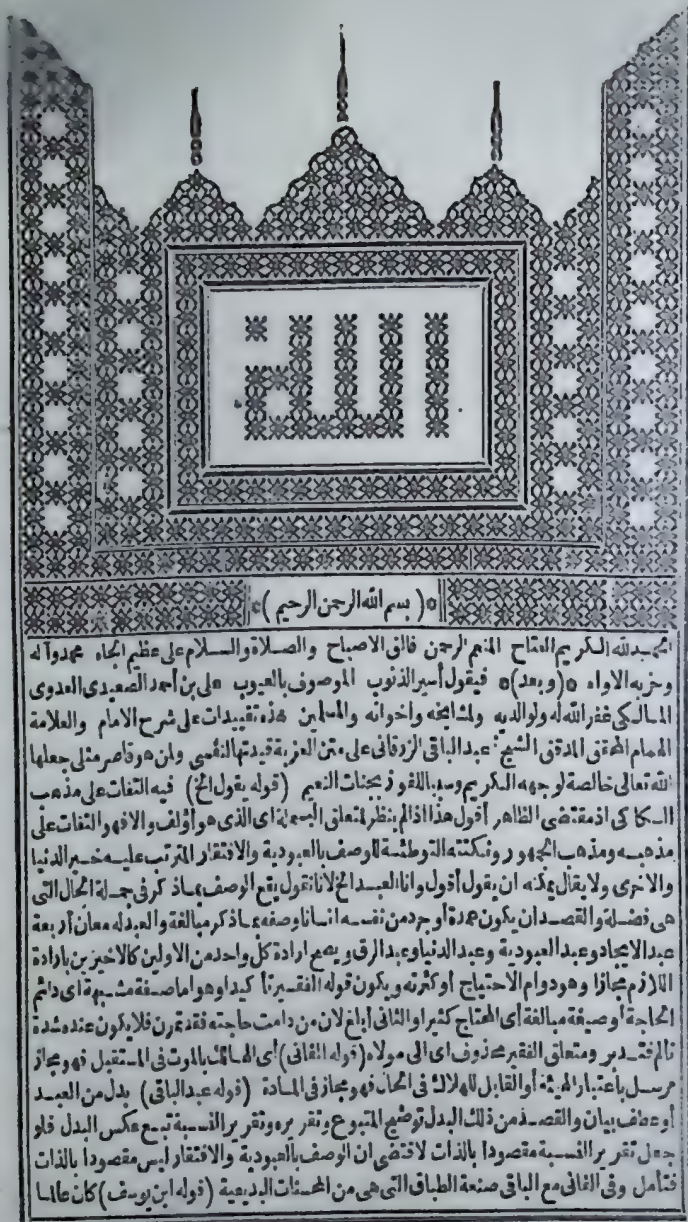 الله
*(بسم الله الرحمن الرحيم)*
الحمد لله الكريم الفتاح المنعم الرحمن فالق الاصباح والصلاة والسلام على عظيم الجاه محمد وآله
وحزبه الاواه *(وبعد)* فيقول أسير الذنوب الموصوف بالعيوب على بن أحمد الصعيدى العدوى
المالكى غفر الله له ولوالديه ولمشايخه واخوانه والمسلمين هذه تقييدات على شرح الامام والعلامة
الهمام المحقق المدقق الشيخ عبد الباقى الزرقانى على متن العزية قيدتها لنفسى ولمن هو قاصر مثلى جعلها
الله تعالى خالصة لوجهه الكريم وسببا للفوز بجنات النعيم (قوله يقول الخ) فيه التفات على مذهب
السكاكى اذ مقتضى الظاهر أقول هذا اذا لم ينظر لمتعلق البسملة اى الذى هو أؤلف والا فهو التفات على
مذهبه ومذهب الجمهور ونكتته التوطئة للوصف بالعبودية والافتقار المترتب عليه خير الدنيا
والاخرى ولا يقال يمكنه ان يقول أقول وانا العبد الخ لانا نقول يقع الوصف بما ذكر فى جملة الحال التى
هى فضلة والقصد ان يكون عمدة أو جرد من نفسه انسانا وصفه بما ذكر مبالغة والعبد له معان أربعة
عبد الايجاد وعبد العبودية وعبد الدنيا وعبد الرق ويصح ارادة كل واحد من الاولين كالاخيرين بارادة
اللازم مجازا وهو دوام الاحتياج أو كثرته ويكون قوله الفقير تأكيدا وهو اما صفة مشبهة اى دائم
الحاجة أو صيغة مبالغة أى المحتاج كثيرا والثانى أبلغ لان من دامت حاجته فقد تمرن فلا يكون عنده شدة
تألم فتدبر ومتعلق الفقير محذوف اى الى مولاه (قوله الفانى) أى الهالك بالموت فى المستقبل فهو مجاز
مرسل باعتبار الهيئة أو القابل للهلاك فى الحال فهو مجاز فى المادة (قوله عبد الباقى) بدل من العبد
أو عطف بيان والقصد من ذلك البدل توضيح المتبوع وتقريره وتقرير النسبة تبع عكس البدل فلو
جعل تقرير النسبة مقصودا بالذات لاقتضى ان الوصف بالعبودية والافتقار ليس مقصودا بالذات
فتأمل وفى الفانى مع الباقى صنعة الطباق التى هى من المحسنات البديعية (قوله ابن يوسف) كان عالما